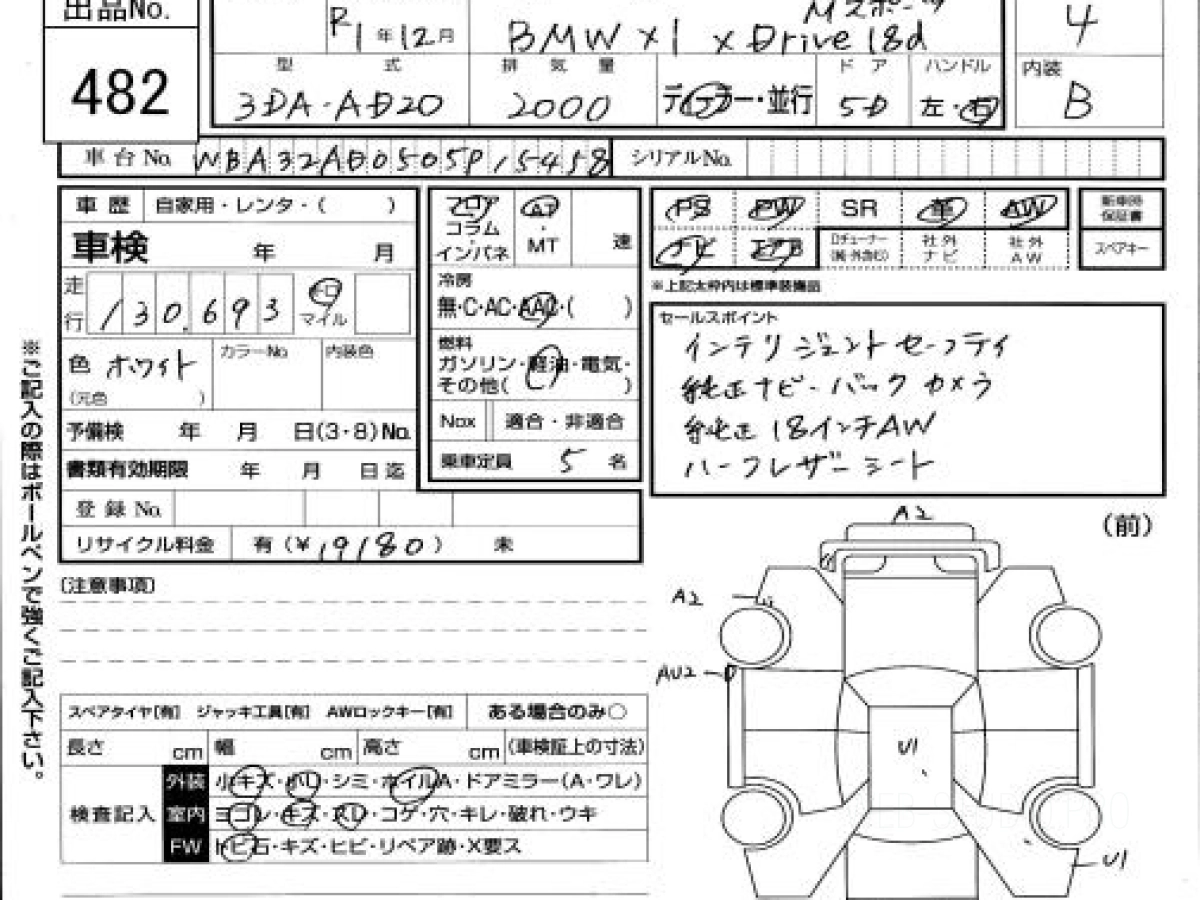 出品No.
482
R1年12月
Mスポーツ
BMW x1 xDrive18d
4
型 式
3DA-AD20
排 気 量
2000
ディーラー・並行
ドア
5D
ハンドル
左・右
内装
B
車台No. WBA32AD0505P15458
シリアルNo.
車歴 自家用・レンタ・( )
車検 年 月
走行 130,693 キロ マイル
色 ホワイト
(元色 )
カラーNo.
内装色
予備検 年 月 日(3・8)No.
書類有効期限 年 月 日迄
登録No.
リサイクル料金 有(¥19180) 未
フロア
コラム
インパネ
AT
・
MT
速
冷房
無・C・AC・AAC・( )
燃料
ガソリン・軽油・電気・
その他( )
Nox 適合・非適合
乗車定員 5 名
PS PW SR 革 AW
ナビ エアB
Dチューナー
社外
ナビ
社外
AW
新車時
保証書
スペアキー
※上記太枠内は標準装備品
セールスポイント
インテリジェントセーフティ
純正ナビ・バックカメラ
純正18インチAW
ハーフレザーシート
※ご記入の際はボールペンで強くご記入下さい。
〔注意事項〕
スペアタイヤ[有] ジャッキ工具[有] AWロックキー[有] ある場合のみ○
長さ cm 幅 cm 高さ cm (車検証上の寸法)
検査記入
外装 小キズ・ハレ・シミ・ホイルA・ドアミラー(A・ワレ)
室内 ヨゴレ・キズ・スレ・コゲ・穴・キレ・破れ・ウキ
FW トビ石・キズ・ヒビ・リペア跡・X要ス
(前)
A2
A2
AU2
U1
U1